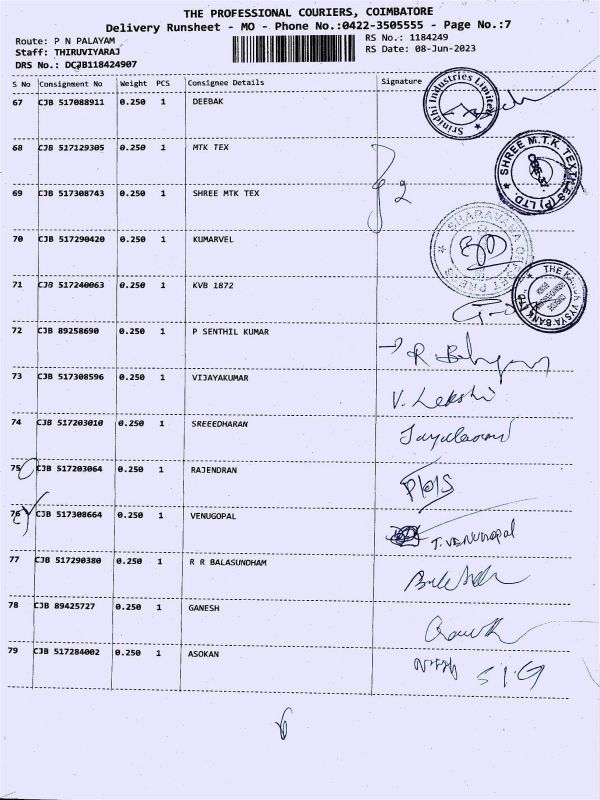 THE PROFESSIONAL COURIERS, COIMBATORE
Delivery Runsheet - MO - Phone No.:0422-3505555 - Page No.:7
Route: P N PALAYAM
RS No.: 1184249
Staff: THIRUVIYARAJ
RS Date: 08-Jun-2023
DRS No.: DCJB118424907
S No Consignment No Weight PCS Consignee Details Signature
67 CJB 517088911 0.250 1 DEEBAK
Srinidhi Industries Limited
68 CJB 517129305 0.250 1 MTK TEX
SHREE M.T.K. TEXTILES (P) LTD.
CBE-37.
69 CJB 517308743 0.250 1 SHREE MTK TEX
70 CJB 517290420 0.250 1 KUMARVEL
71 CJB 517240063 0.250 1 KVB 1872
THE KARUR VYSYA BANK LTD.
72 CJB 89258690 0.250 1 P SENTHIL KUMAR
73 CJB 517308596 0.250 1 VIJAYAKUMAR
V. Lekshi
74 CJB 517203010 0.250 1 SREEEDHARAN
75 CJB 517203064 0.250 1 RAJENDRAN
76 CJB 517308664 0.250 1 VENUGOPAL
T. VENUGOPAL
77 CJB 517290380 0.250 1 R R BALASUNDHAM
78 CJB 89425727 0.250 1 GANESH
79 CJB 517284002 0.250 1 ASOKAN